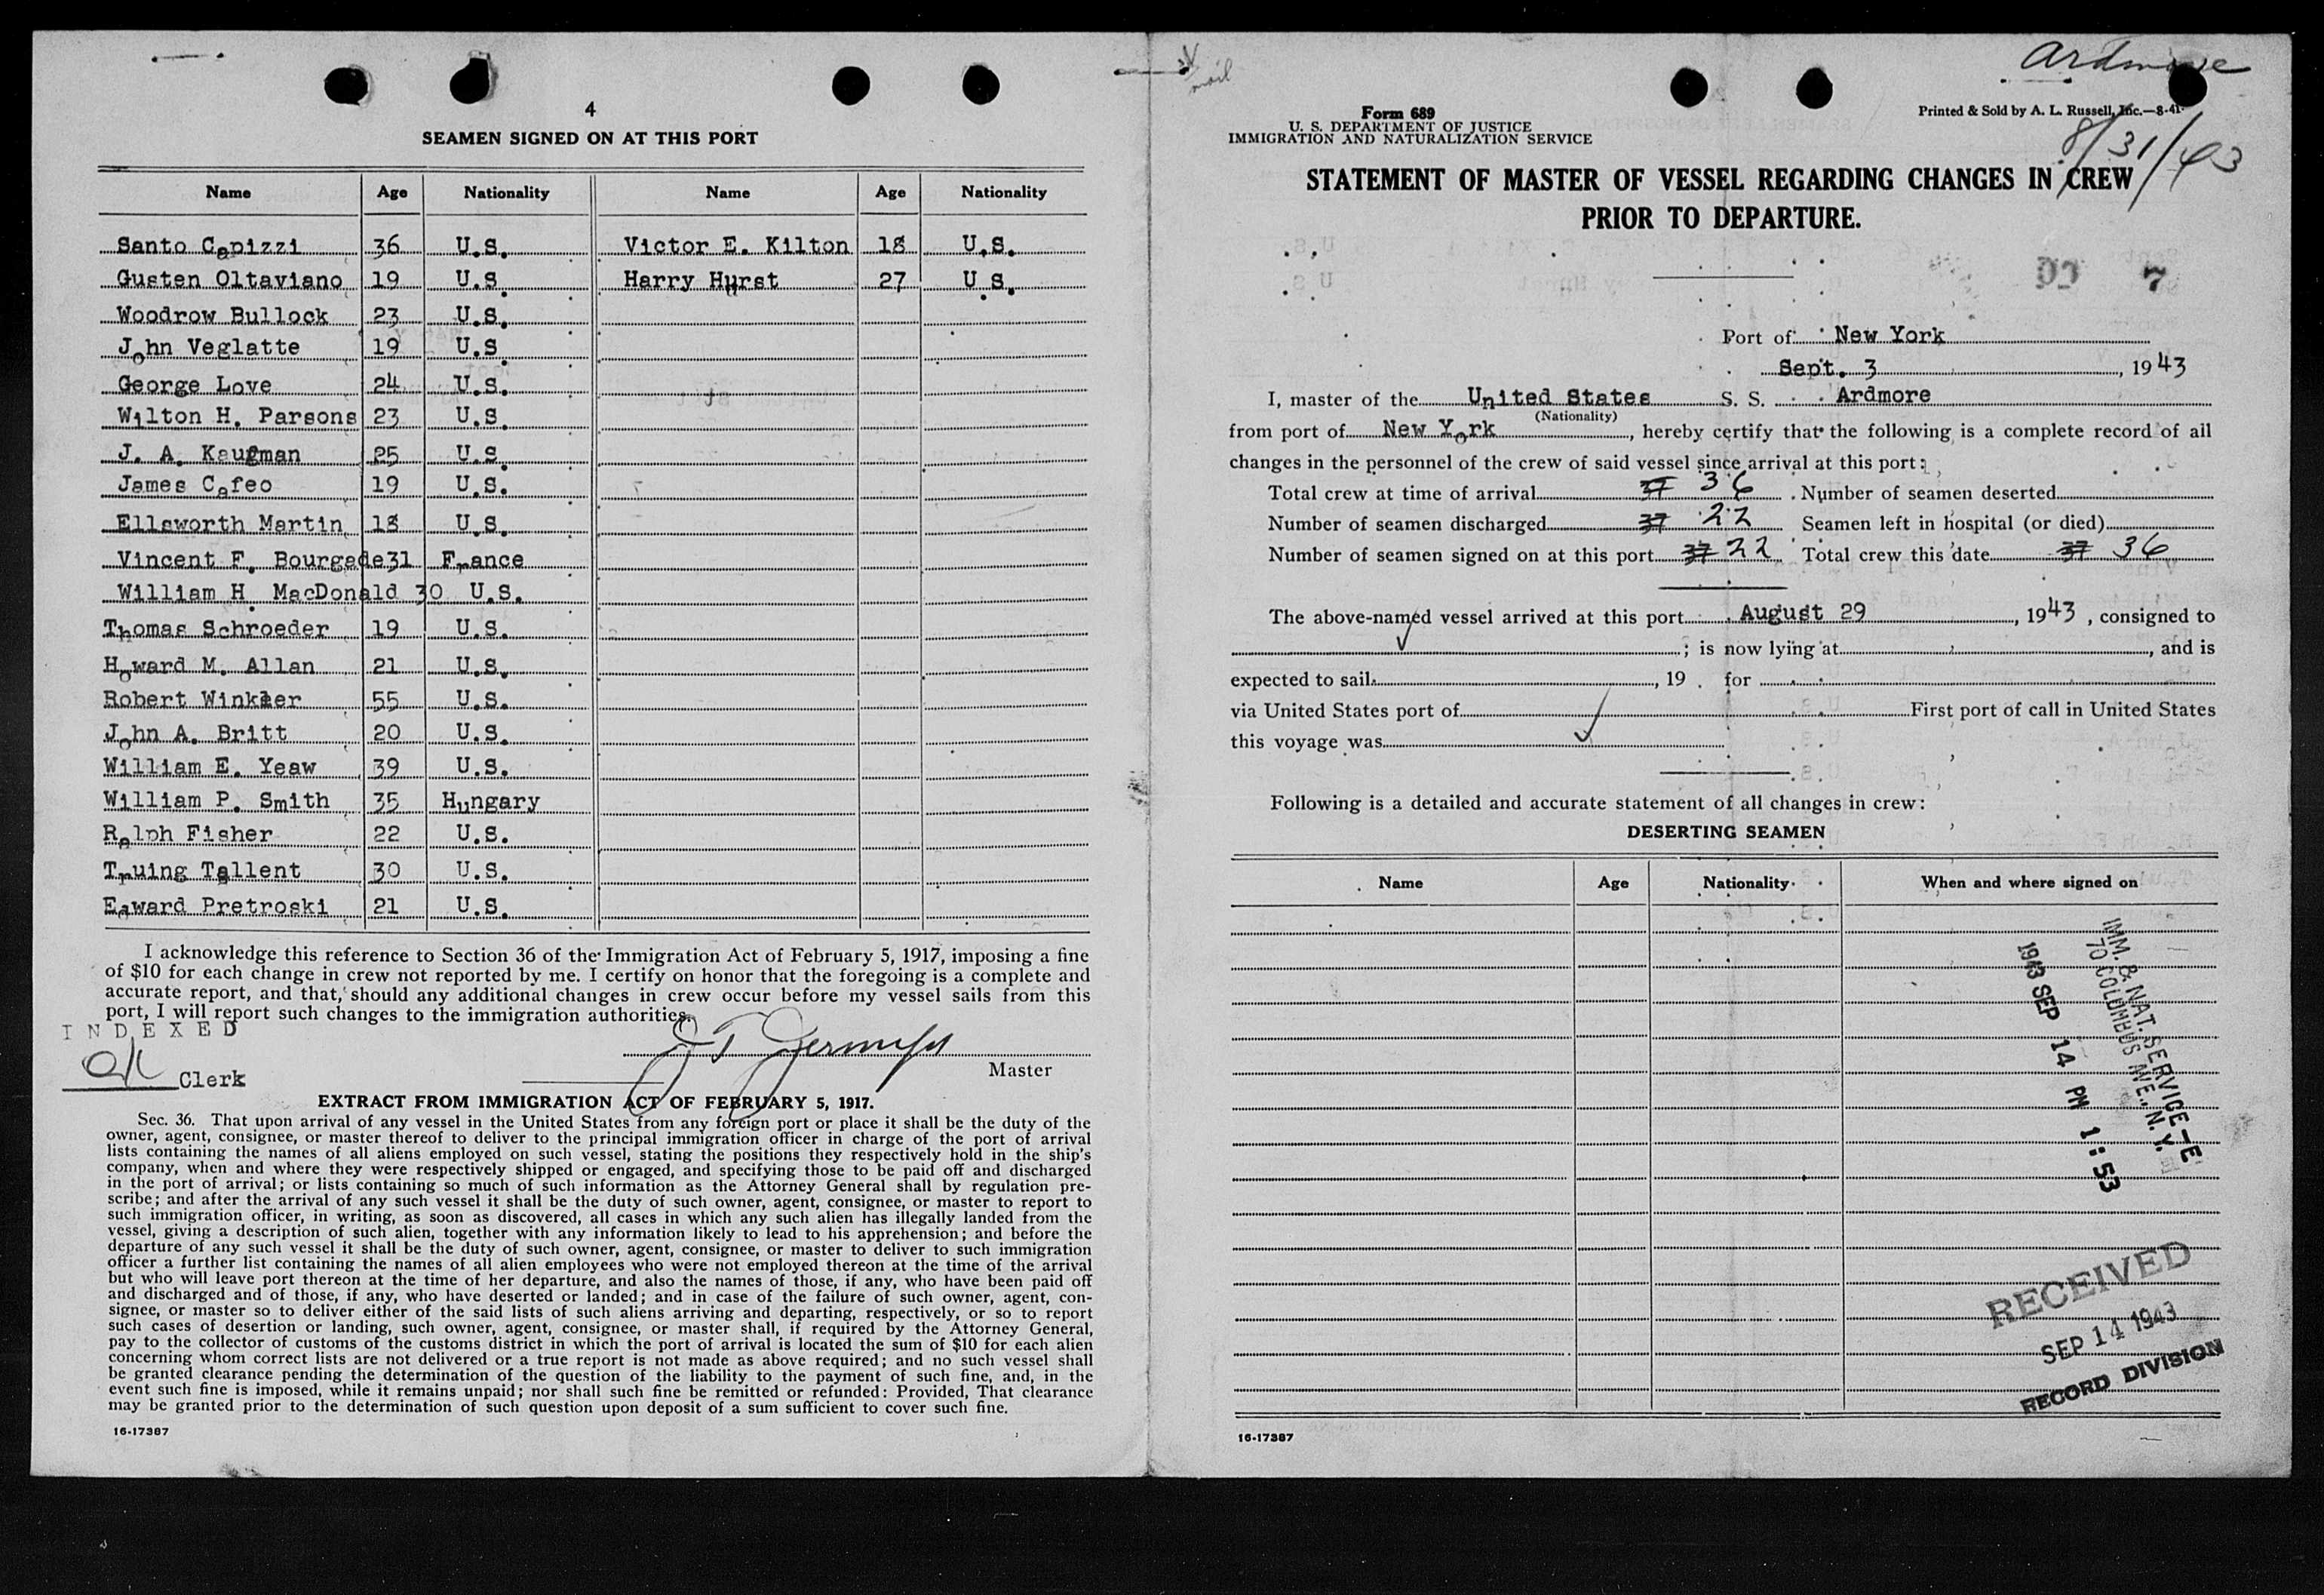 4
SEAMEN SIGNED ON AT THIS PORT
Name Age Nationality Name Age Nationality
Santo Capizzi 36 U.S. Victor E. Kilton 18 U.S.
Gusten Oltaviano 19 U.S. Harry Hurst 27 U.S.
Woodrow Bullock 23 U.S.
John Veglatte 19 U.S.
George Love 24 U.S.
Wilton H. Parsons 23 U.S.
J. A. Kaufman 25 U.S.
James Cafeo 19 U.S.
Ellsworth Martin 18 U.S.
Vincent F. Bourgade 31 France
William H. MacDonald 30 U.S.
Thomas Schroeder 19 U.S.
Howard M. Allan 21 U.S.
Robert Winkler 55 U.S.
John A. Britt 20 U.S.
William E. Yeaw 39 U.S.
William P. Smith 35 Hungary
Ralph Fisher 22 U.S.
Truing Tallent 30 U.S.
Edward Pretroski 21 U.S.
I acknowledge this reference to Section 36 of the Immigration Act of February 5, 1917, imposing a fine
of $10 for each change in crew not reported by me. I certify on honor that the foregoing is a complete and
accurate report, and that, should any additional changes in crew occur before my vessel sails from this
port, I will report such changes to the immigration authorities.
INDEXED
Clerk
Master
EXTRACT FROM IMMIGRATION ACT OF FEBRUARY 5, 1917.
Sec. 36. That upon arrival of any vessel in the United States from any foreign port or place it shall be the duty of the
owner, agent, consignee, or master thereof to deliver to the principal immigration officer in charge of the port of arrival
lists containing the names of all aliens employed on such vessel, stating the positions they respectively hold in the ship's
company, when and where they were respectively shipped or engaged, and specifying those to be paid off and discharged
in the port of arrival; or lists containing so much of such information as the Attorney General shall by regulation pre-
scribe; and after the arrival of any such vessel it shall be the duty of such owner, agent, consignee, or master to report to
such immigration officer, in writing, as soon as discovered, all cases in which any such alien has illegally landed from the
vessel, giving a description of such alien, together with any information likely to lead to his apprehension; and before the
departure of any such vessel it shall be the duty of such owner, agent, consignee, or master to deliver to such immigration
officer a further list containing the names of all alien employees who were not employed thereon at the time of the arrival
but who will leave port thereon at the time of her departure, and also the names of those, if any, who have been paid off
and discharged and of those, if any, who have deserted or landed; and in case of the failure of such owner, agent, con-
signee, or master so to deliver either of the said lists of such aliens arriving and departing, respectively, or so to report
such cases of desertion or landing, such owner, agent, consignee, or master shall, if required by the Attorney General,
pay to the collector of customs of the customs district in which the port of arrival is located the sum of $10 for each alien
concerning whom correct lists are not delivered or a true report is not made as above required; and no such vessel shall
be granted clearance pending the determination of the question of the liability to the payment of such fine, and, in the
event such fine is imposed, while it remains unpaid; nor shall such fine be remitted or refunded: Provided, That clearance
may be granted prior to the determination of such question upon deposit of a sum sufficient to cover such fine.
16-17387
mail
Ardmore
Form 689
U. S. DEPARTMENT OF JUSTICE
IMMIGRATION AND NATURALIZATION SERVICE
Printed & Sold by A. L. Russell, Inc.—8-41
8/31/43
STATEMENT OF MASTER OF VESSEL REGARDING CHANGES IN CREW
PRIOR TO DEPARTURE.
7
Port of New York
Sept. 3, 1943
I, master of the United States S. S. Ardmore
(Nationality)
from port of New York, hereby certify that the following is a complete record of all
changes in the personnel of the crew of said vessel since arrival at this port:
Total crew at time of arrival 37 36 Number of seamen deserted
Number of seamen discharged 37 22 Seamen left in hospital (or died)
Number of seamen signed on at this port 37 22 Total crew this date 37 36
The above-named vessel arrived at this port August 29, 1943, consigned to
; is now lying at , and is
expected to sail , 19 . for
via United States port of First port of call in United States
this voyage was
Following is a detailed and accurate statement of all changes in crew:
DESERTING SEAMEN
Name Age Nationality When and where signed on
IMM. & NAT. SERVICE-TE
70 COLUMBUS AVE., N.Y.
1943 SEP 14 PM 1:53
RECEIVED
SEP 14 1943
RECORD DIVISION
16-17387